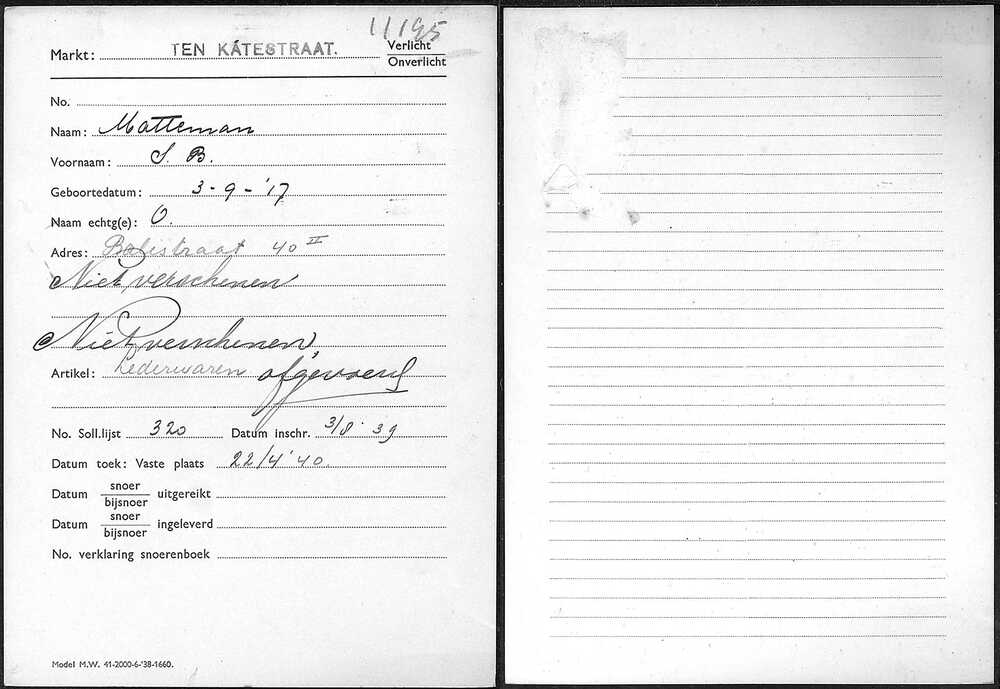 11195
Markt: TEN KATESTRAAT. Verlicht
Onverlicht
No.
Naam: Matteman
Voornaam: S. B.
Geboortedatum: 3-9-'17
Naam echtg(e): O.
Adres: Balistraat 40 II
Niet verschenen
Niet verschenen,
Artikel: Lederwaren afgevoerd
No. Soll.lijst 320 Datum inschr. 3/8 '39
Datum toek: Vaste plaats 22/4 '40.
Datum snoer uitgereikt
bijsnoer
Datum snoer ingeleverd
bijsnoer
No. verklaring snoerenboek
Model M.W. 41-2000-6-'38-1660.